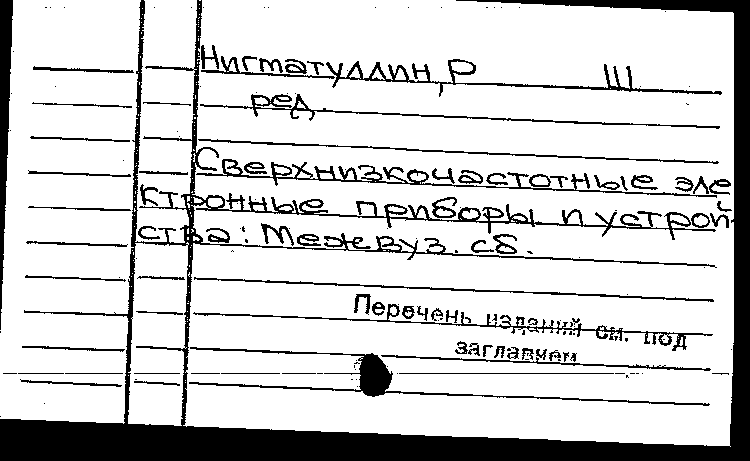 Нигматуллин, Р Ш
ред.
Сверхнизкочастотные эле
ктронные приборы и устрой-
ства: Межвуз. сб.
Перечень изданий см. под
заглавием